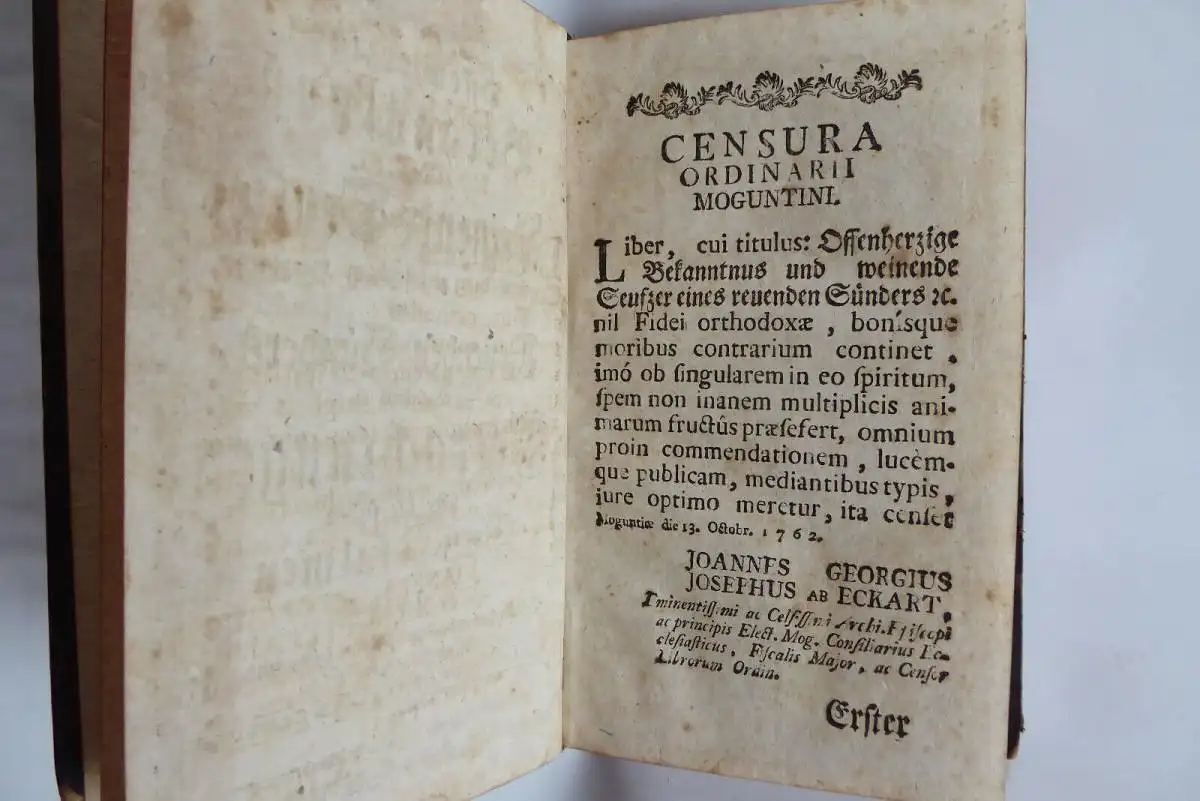 CENSURA
ORDINARII
MOGUNTINI.
Liber, cui titulus: Offenherzige
Bekanntnus und weinende
Seufzer eines reuenden Sünders ꝛc.
nil Fidei orthodoxæ, bonísque
moribus contrarium continet,
imó ob ſingularem in eo ſpiritum,
ſpem non inanem multiplicis ani-
marum fructûs præſefert, omnium
proin commendationem, lucèm-
que publicam, mediantibus typis,
jure optimo meretur, ita cenſet
Moguntiæ die 13. Octobr. 1762.
JOANNES GEORGIUS
JOSEPHUS AB ECKART,
Eminentiſſimi ac Celſiſſimi Archi-Epiſcopi
ac principis Elect. Mog. Conſiliarius Ec-
cleſiaſticus, Fiſcalis Major, ac Cenſor
Librorum Ordin.
Erſter